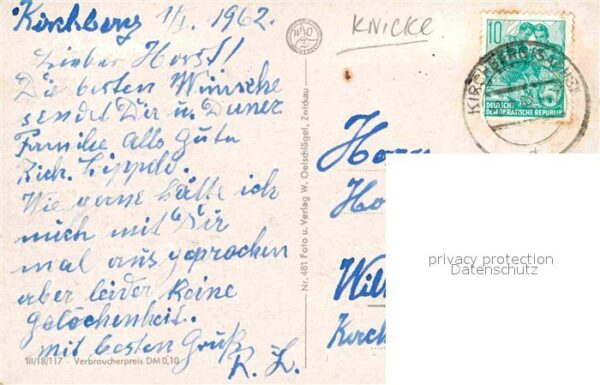 Kirchberg 1/1. 1962.
Lieber Horst!
Die besten Wünsche
sendet Dir u. Deiner
Familie Alles Gute
Rich. Lippold.
Wie gerne hätte ich
mich mit Dir
mal aus gesprochen
aber leider keine
gelöchenheit.
mit besten Gruß
R. L.
III/18/117 - Verbraucherpreis DM 0,10
Nr. 481 Foto u. Verlag W. Oelschlägel, Zwickau
KNICKE
10
5
DEUTSCHE
DEMOKRATISCHE REPUBLIK
Wilk
Kirch
privacy protection
Datenschutz